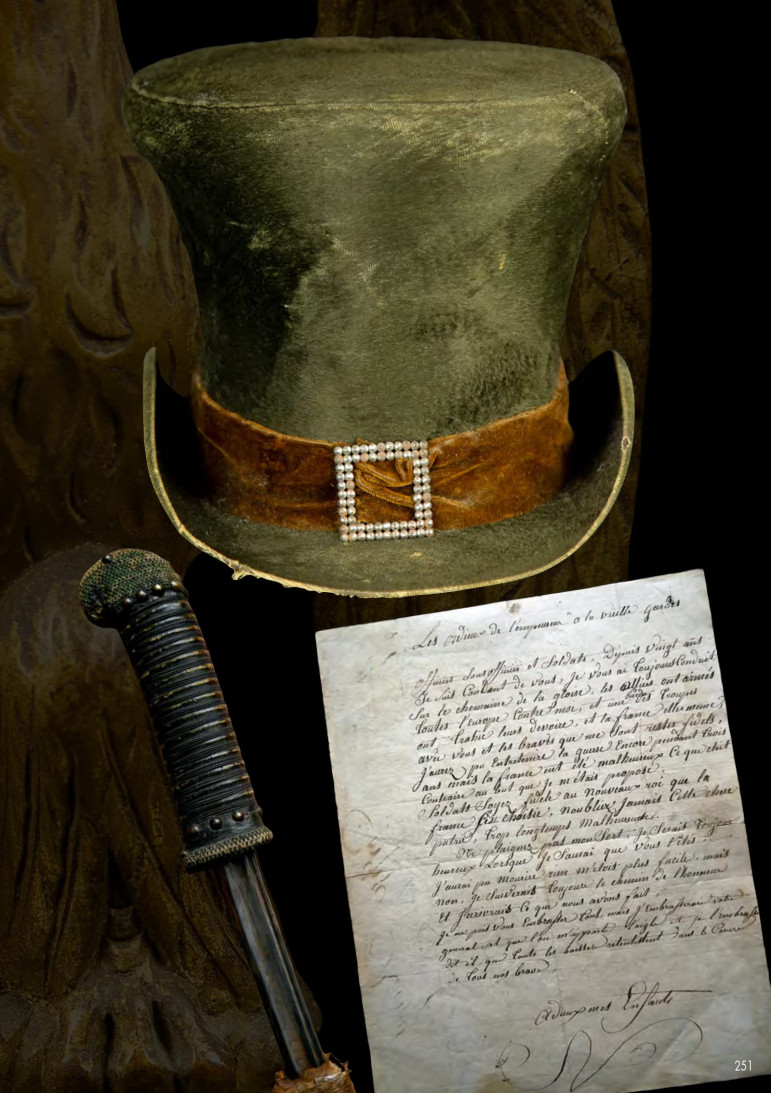 Les adieux de l'empereur a la vieille gardes
officiers sousofficiers et Soldats. Depuis vingt ans
Je Suis Content de vous. Je vous ai Toujours Conduit
Sur le chemain de la gloire, les alliés ont armés
Toutes l'Europe Contre moi, et une des Troupes
ont Trahie leurs devoire, et la france elle meme,
avec vous et les braves que me Sont restés fidels,
J'aurez pu Entretenire la guere Encore pendant trois
ans mais la france eut été malheureux Ce que etait
Contraire au but que Je m'étais proposé.
Soldats Soyez fidele au nouveaux roi que la
france S'es choisie, noubliex Jamais Cette chere
patrie, trop longtemps Malheureuse.
Ne plaignez pas mon Sort, Je Serais Toujour
heureux Lorsque Je Saurai que vous l'étés.
J'aurai pu Mourire rien m'etois plus facile, mais
non. Je Suiverais Toujoure le chemin de l'honneur
Et J'ecrirais Ce que nous avons fait.
Je ne puis vous Embrasser Tout, mais J'embrasserai votre
general, et que l'on m'apporte l'aigle et Je l'embrasse
dit il, que Toute les baisser retentissent dans le Coeur
de Tous nos brave
adieux mes Enfants
251